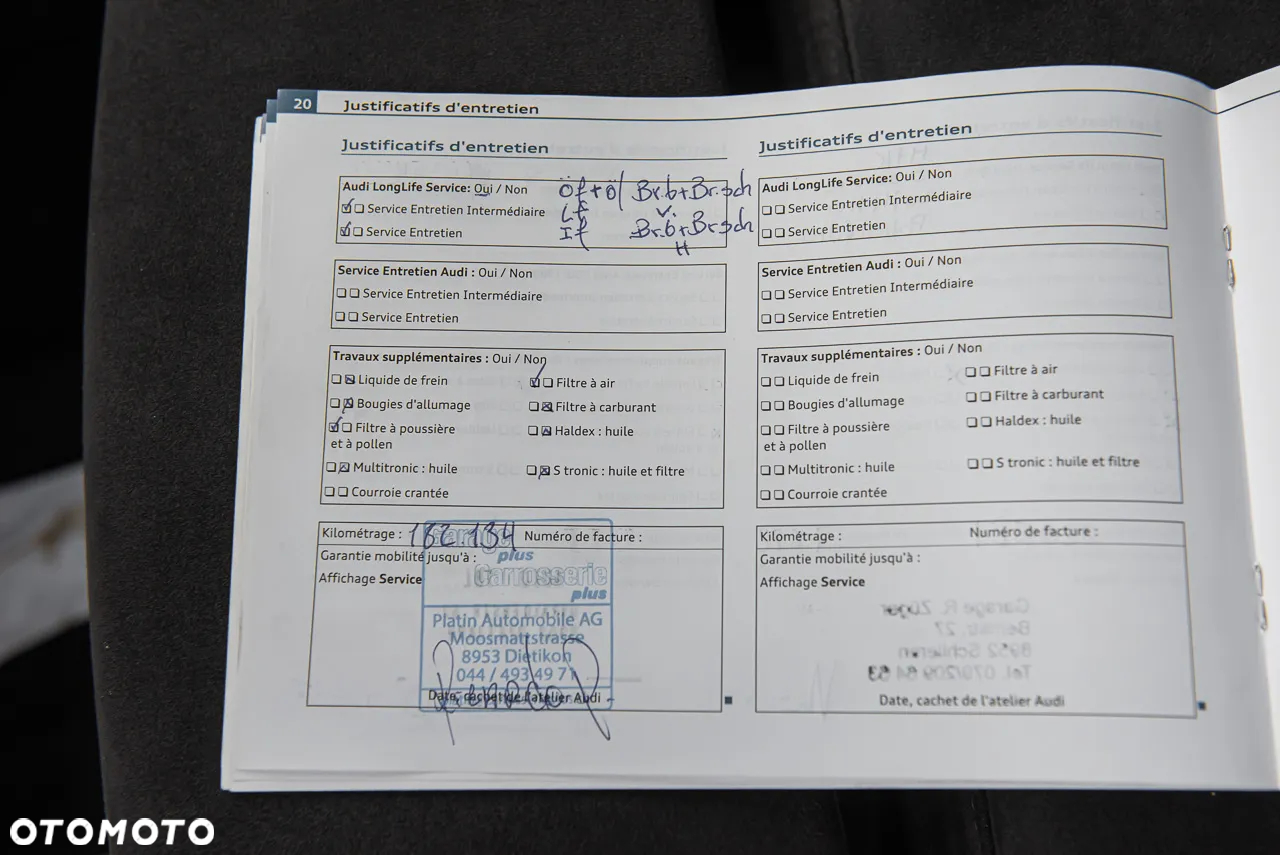 20 Justificatifs d'entretien
Justificatifs d'entretien
Audi LongLife Service: Oui / Non
Öf+Öl Br.b+Br.sch
V.
Service Entretien Intermédiaire
Lf
Service Entretien
If Br.b+Br.sch
H
Service Entretien Audi : Oui / Non
Service Entretien Intermédiaire
Service Entretien
Travaux supplémentaires : Oui / Non
Liquide de frein
Filtre à air
Bougies d'allumage
Filtre à carburant
Filtre à poussière
et à pollen
Haldex : huile
Multitronic : huile
S tronic : huile et filtre
Courroie crantée
Kilométrage : 182 134 Numéro de facture :
Garantie mobilité jusqu'à :
Affichage Service
Garage
plus
Carrosserie
plus
Platin Automobile AG
Moosmattstrasse
8953 Dietikon
044 / 493 49 71
Date, cachet de l'atelier Audi
Justificatifs d'entretien
Audi LongLife Service: Oui / Non
Service Entretien Intermédiaire
Service Entretien
Service Entretien Audi : Oui / Non
Service Entretien Intermédiaire
Service Entretien
Travaux supplémentaires : Oui / Non
Liquide de frein
Filtre à air
Bougies d'allumage
Filtre à carburant
Filtre à poussière
et à pollen
Haldex : huile
Multitronic : huile
S tronic : huile et filtre
Courroie crantée
Kilométrage : Numéro de facture :
Garantie mobilité jusqu'à :
Affichage Service
Date, cachet de l'atelier Audi
OTOMOTO